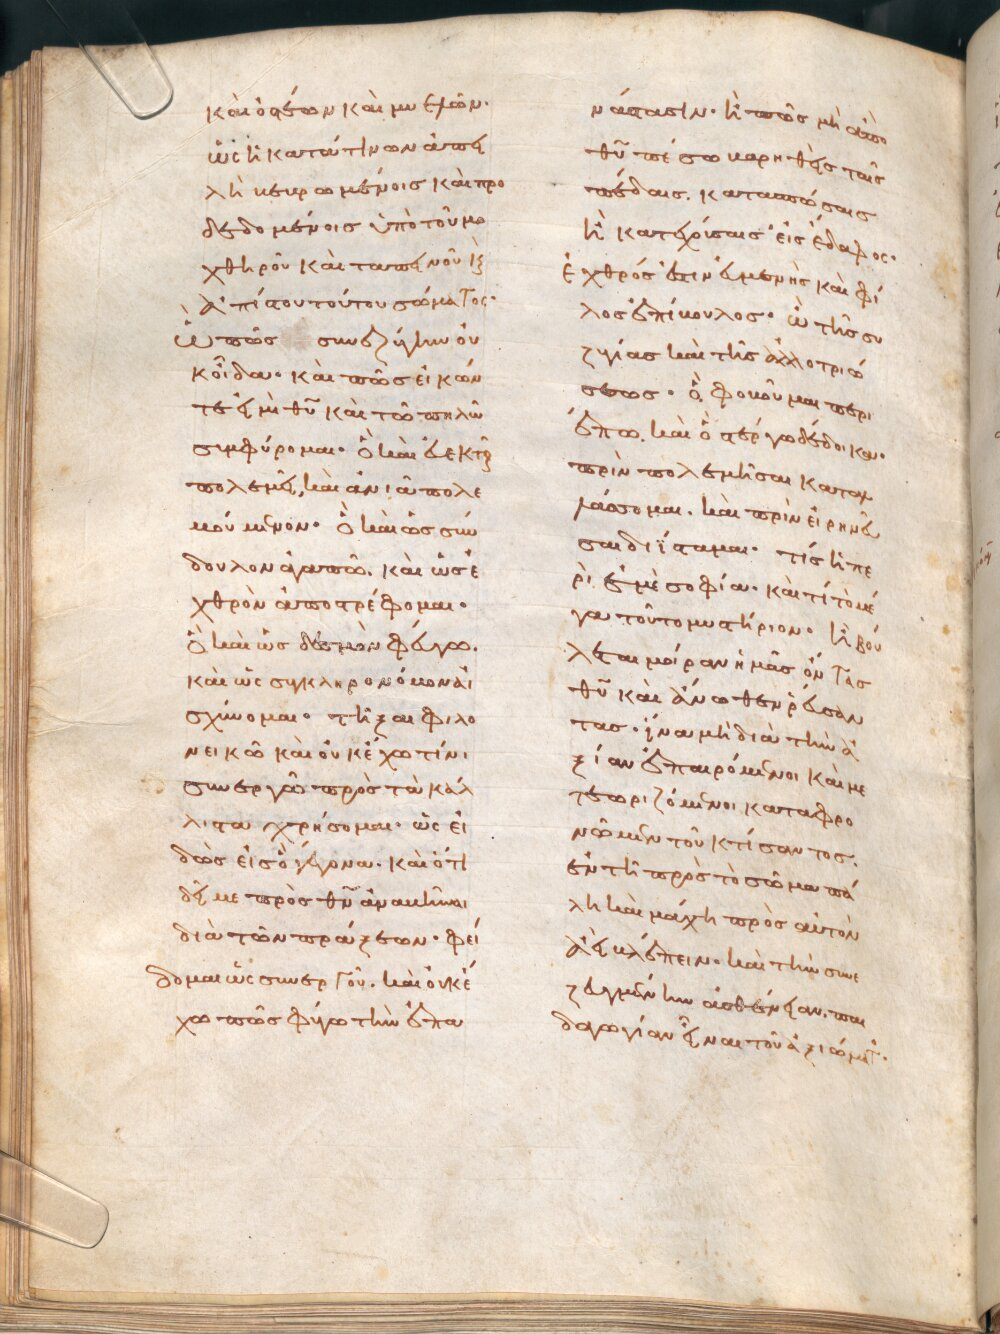 καὶ ὀστέων καὶ μυελῶν·
ὡς ἡ κατά τινων ἀπει
λὴ καὶ προ
δεδομένοις ὑπὸ τοῦ μο
χθηροῦ καὶ ταπεινοῦ κ̀
ἀπίστου τούτου σώματος·
ᾧ πῶς συνεζύγην οὐ
κ οἶδα· καὶ πῶς εἰκών
τε εἰμὶ θῦ καὶ τῶ πηλῶ
συμφύρομαι· ὃ καὶ εὐεκτοῦν
πολεμεῖ, καὶ ἀνιᾶ πολε
μούμενον· ὃ καὶ ὡς σύν
δουλον ἀγαπῶ. καὶ ὡς ἐ
χθρὸν ἀποστρέφομαι·
ὃ καὶ ὡς δεσμὸν φεύγω.
καὶ ὡς συγκληρονόμον αἰ
σχύνομαι· τῆξαι φιλο
νεικῶ καὶ οὐκ ἔχω τίνι
συνεργῶ πρὸς τὰ κάλ
λιστα χρήσομαι· ὡς εἰ
δὼς εἰς ὃ γέγονα· καὶ ὅτι
δεῖ με πρὸς θν̄ ἀναβῆναι
διὰ τῶν πράξεων· φεί
δομαι ὡς συνεργοῦ· καὶ οὐκ ἔ
χω πῶς φύγω τὴν ἐπα
νάστασιν· ἢ πῶς μὴ ἀπὸ
θῦ πέσω βαρηθεὶς ταῖς
πέδαις. κατασπώσαις
ἢ κατεχούσαις εἰς ἔδαφος·
ἐχθρός ἐστιν εὐμενὴς καὶ φί
λος ἐπίβουλος· ὢ τῆς συ
ζυγίας καὶ τῆς ἀλλοτριώ
σεως· ὃ φοβοῦμαι περι
έπω. καὶ ὃ στέργω δέδοικα·
πρὶν πολεμῆσαι καταλ
λάσσομαι. καὶ πρὶν εἰρηνεῦ
σαι διΐσταμαι· τίς ἡ πε
ρὶ ἐμὲ σοφία· καὶ τί τὸ μέ
γα τοῦτο μυστήριον· ἢ βού
λεται μοῖραν ἡμᾶς ὄντας
θῦ καὶ ἄνωθεν ῥεύσαν
τας· ἵνα μὴ διὰ τὴν ἀ
ξίαν ἐπαιρόμενοι καὶ με
τεωριζόμενοι καταφρο
νῶμεν τοῦ κτίσαντος·
ἐν τῆ πρὸς τὸ σῶμα πά
λη καὶ μάχη πρὸς αὐτὸν
ἀεὶ βλέπειν· καὶ τὴν συνε
ζευγμένην ἀσθένειαν. παι
δαγωγίαν εἶναι τοῦ ἀξιώματ·